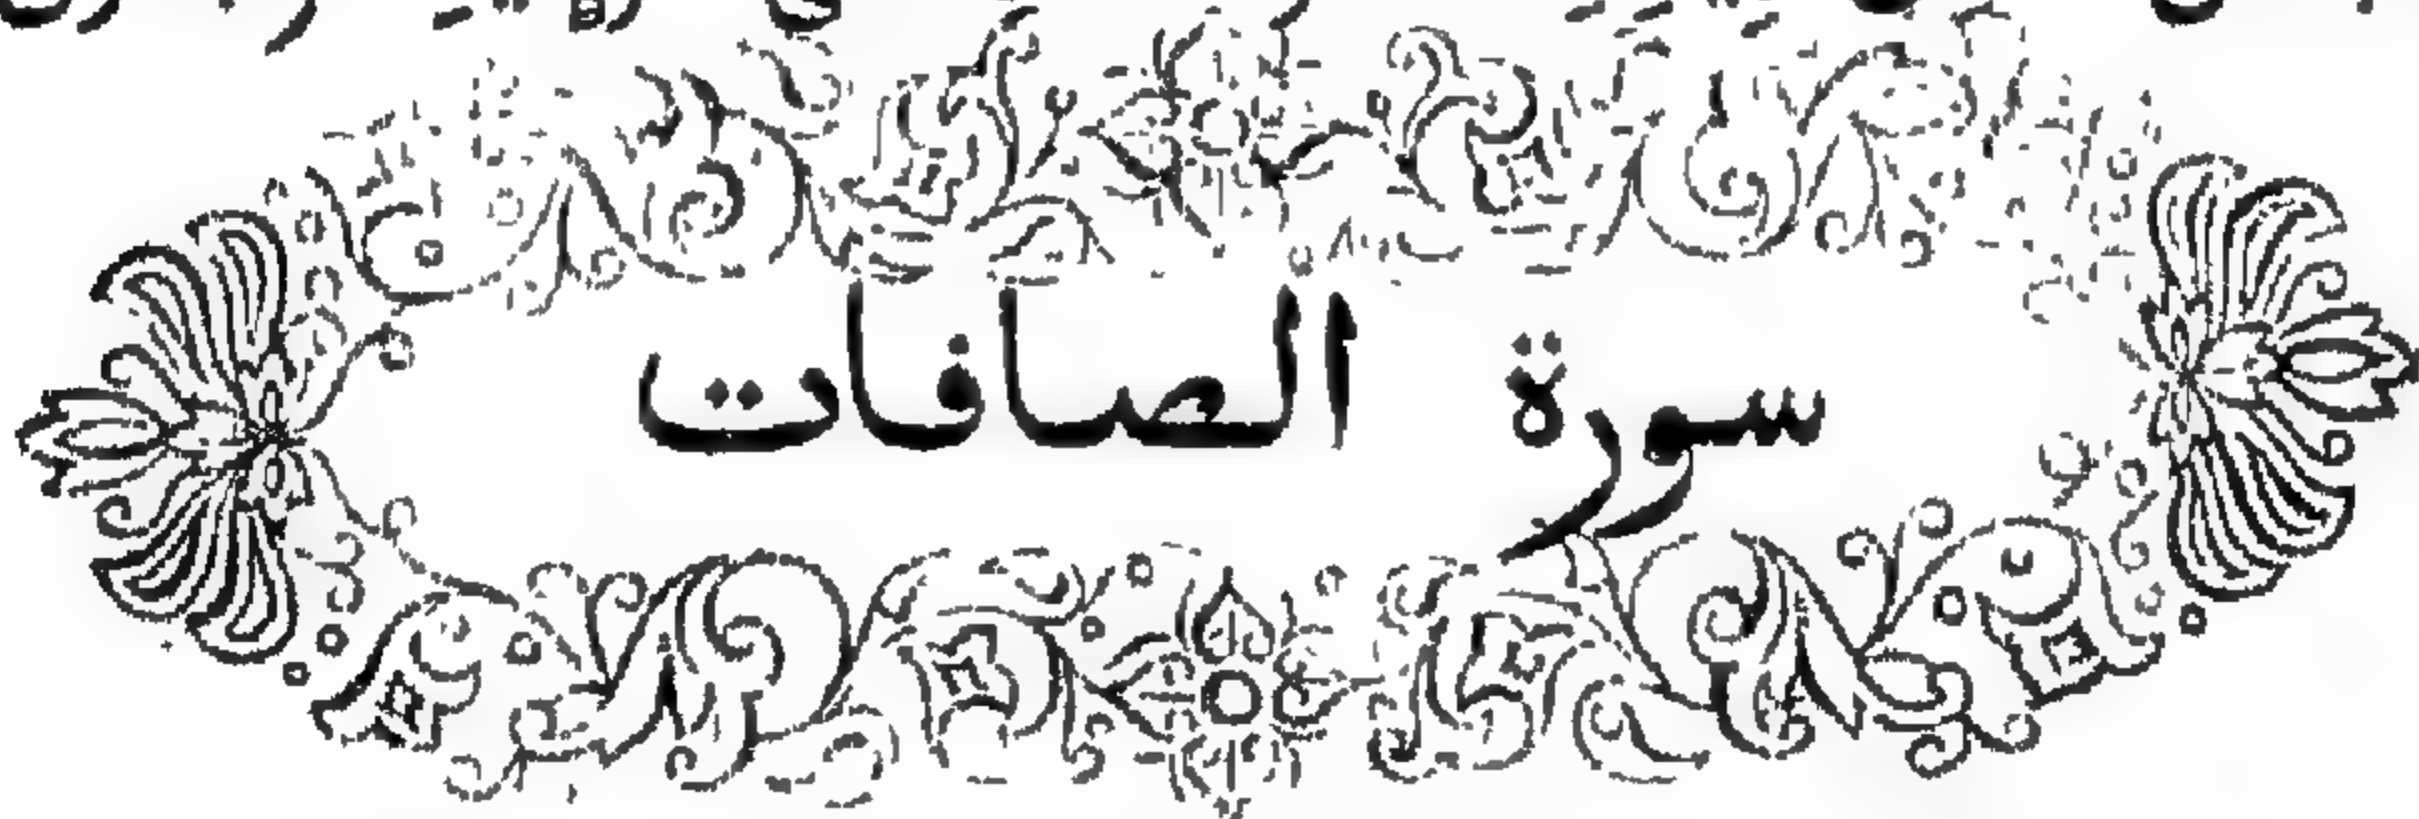 سورة الصافات